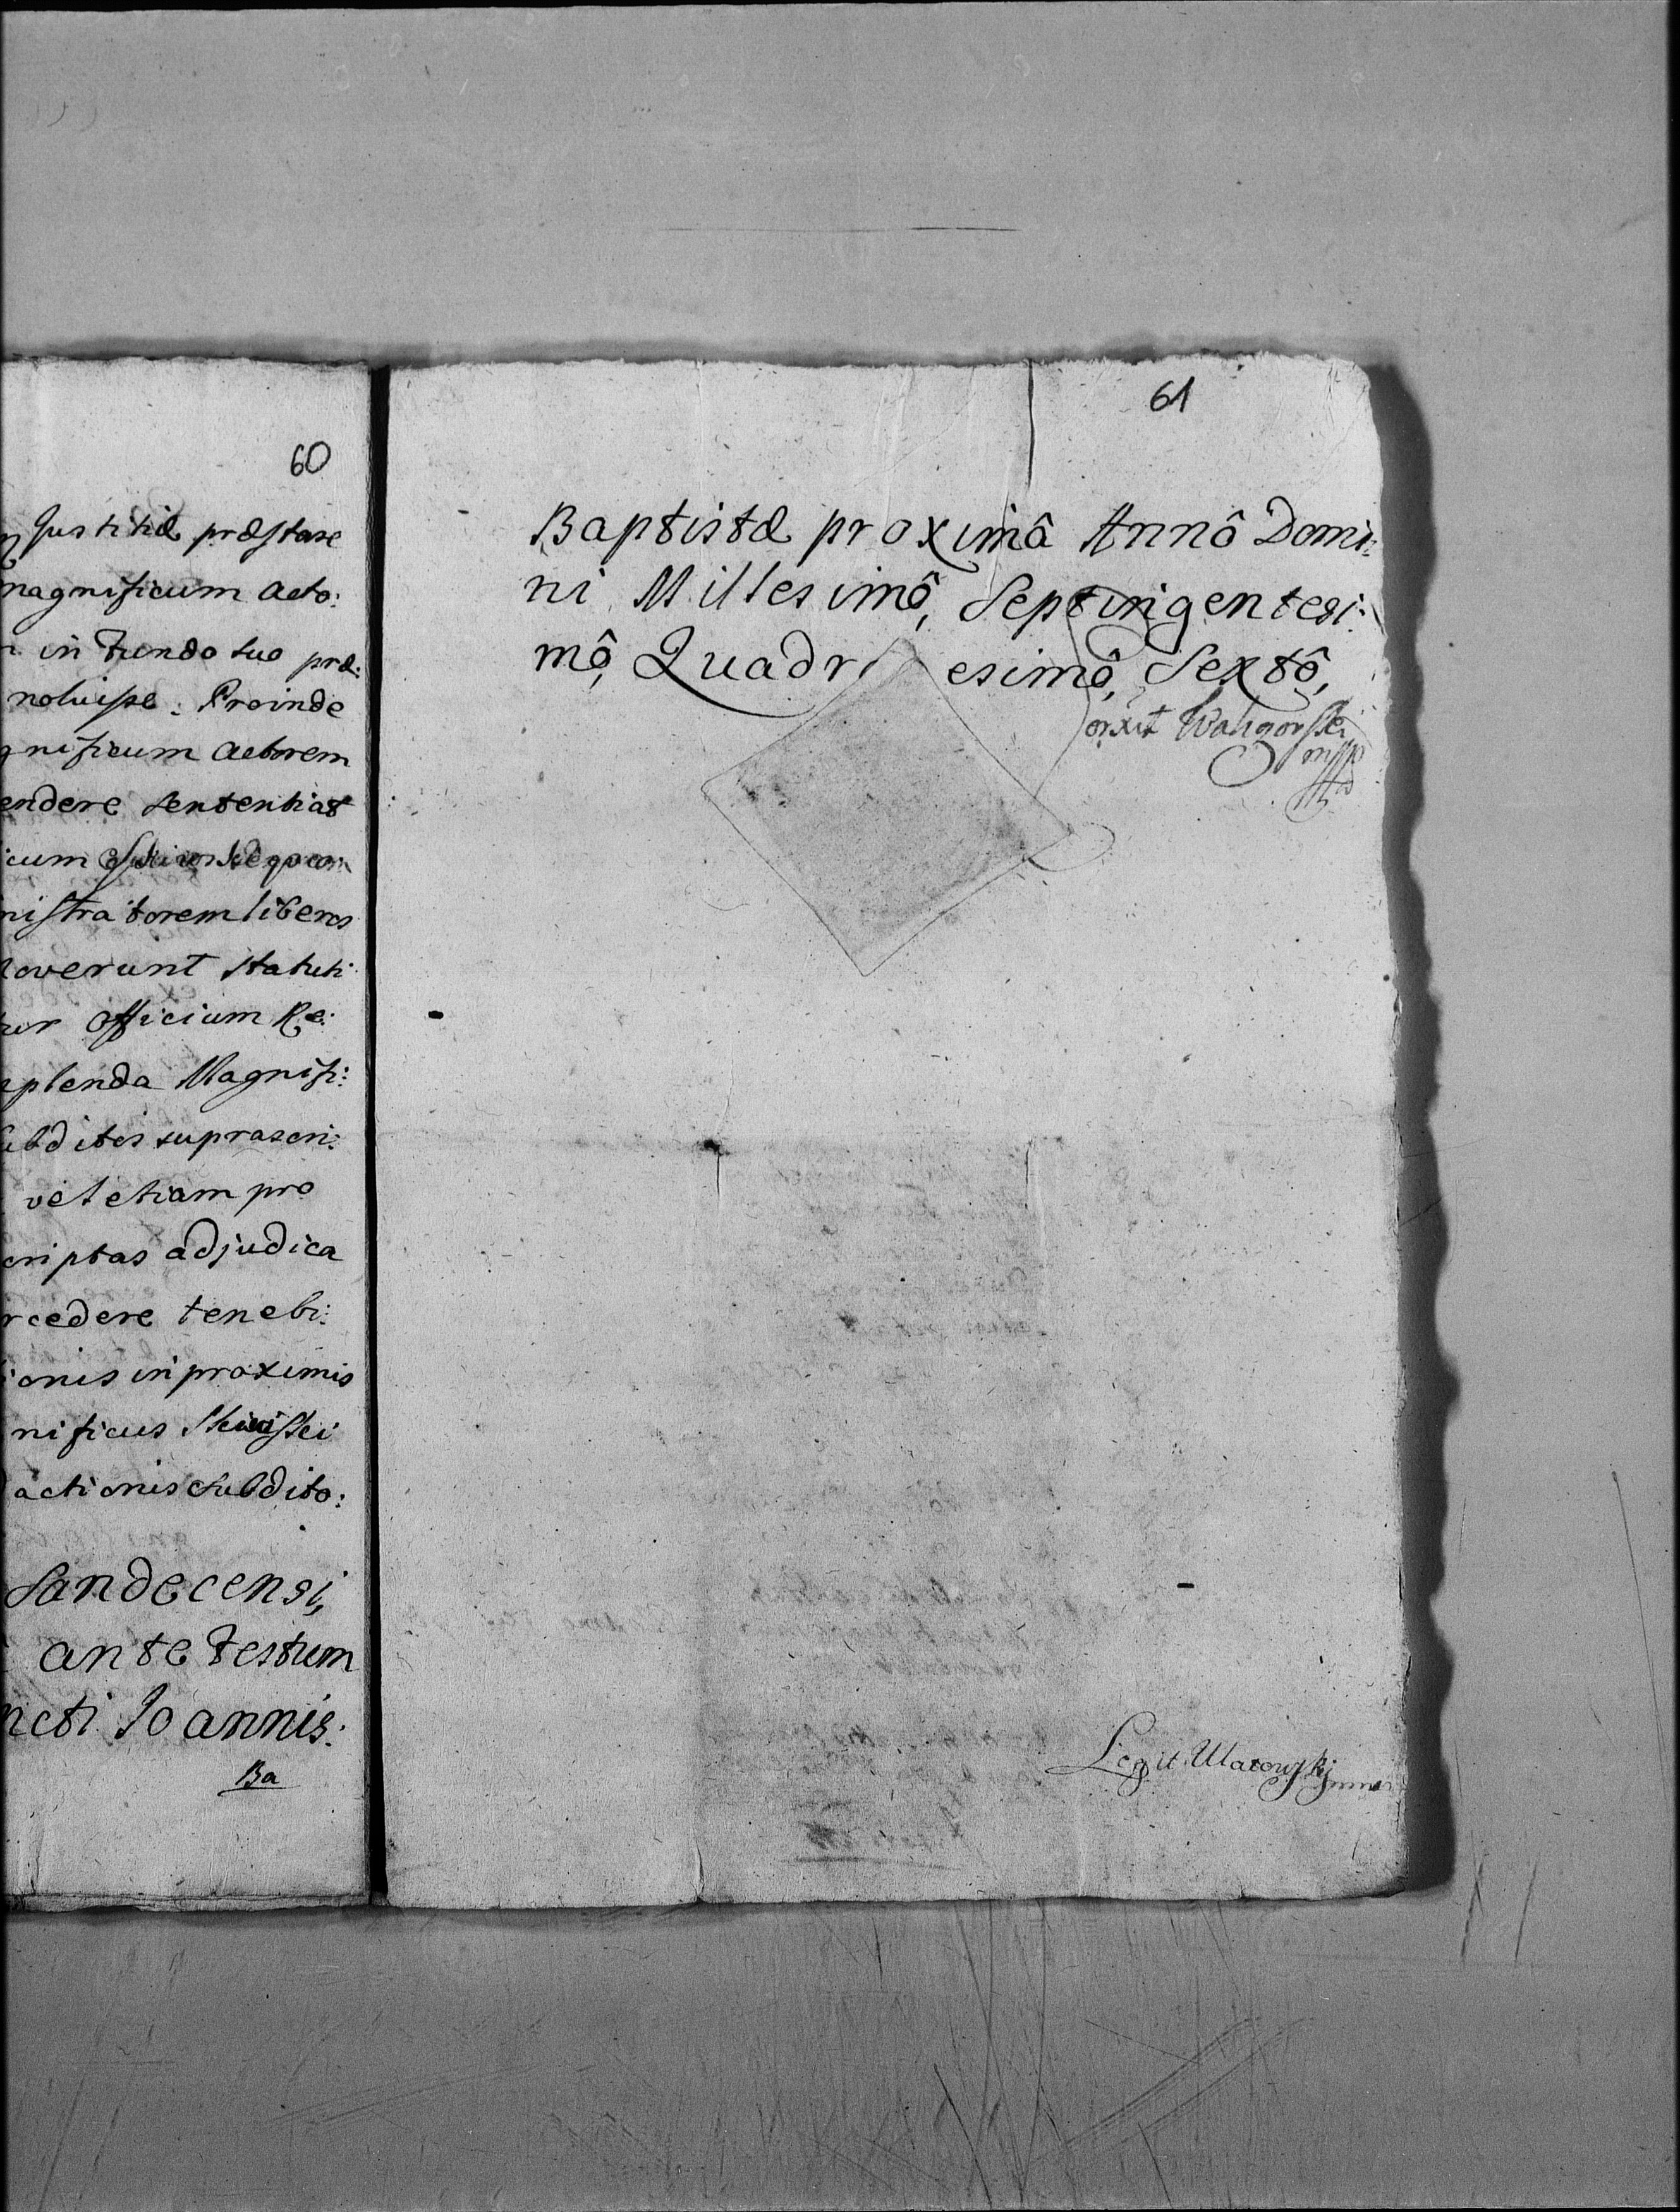 60
Justitiæ præstare
magnificum Acto:
in Fundo suo præ:
noluisse. Proinde
gnificum Actorem
endere Sententiat
cum
nistratorem liberos
overunt Statuti
officium Re:
plenda Magnifi:
subditis suprascri:
vel etiam pro
criptas adjudica
rcedere tenebi:
ionis in proximis
nificus
actionis subdito:
Sandecensi,
ante Festum
ncti Joannis:
Ba
61
Baptistæ proximâ Annô Domi:
ni Millesimô, Septingentesi:
mô, Quadri esimô, Sextô,
orxit Waligorski
mpp
Legit Ulatowski mm